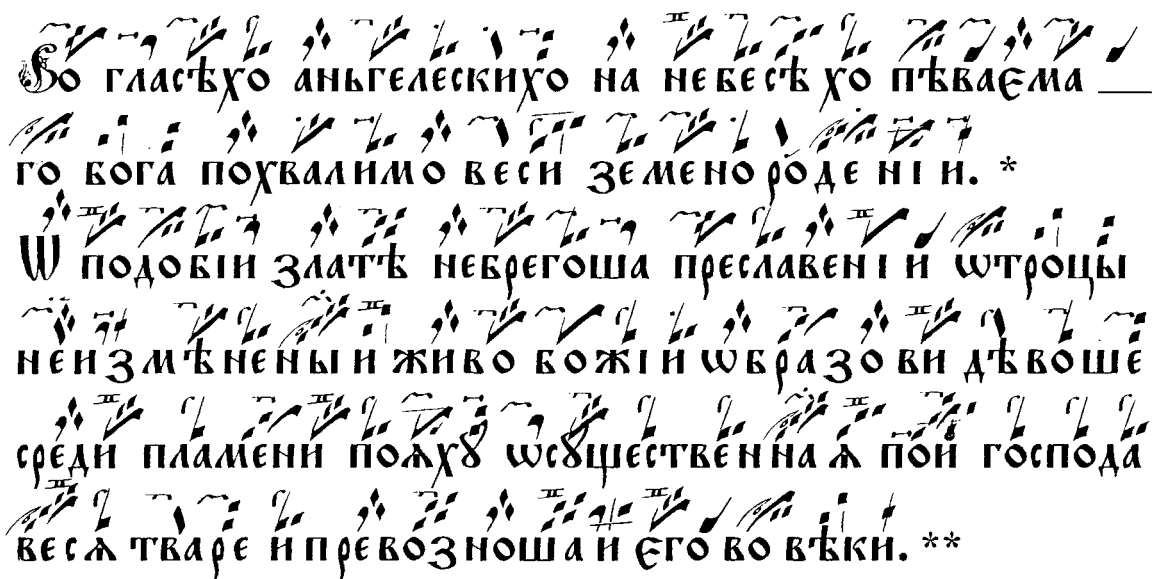 Во гласѣхо аньгелескихо на небесѣхо пѣваєма
го бога похвалимо веси земенороденіи. *
Ѡ подобіи златѣ небрегоша преславеніи ѡтроцы
неизмѣнены и живо божіи ѡбразо видѣвоше
среди пламени пояхꙋ ѡсꙋщественная пои господа
весѧ тваре и превозношаи єго во вѣки. **